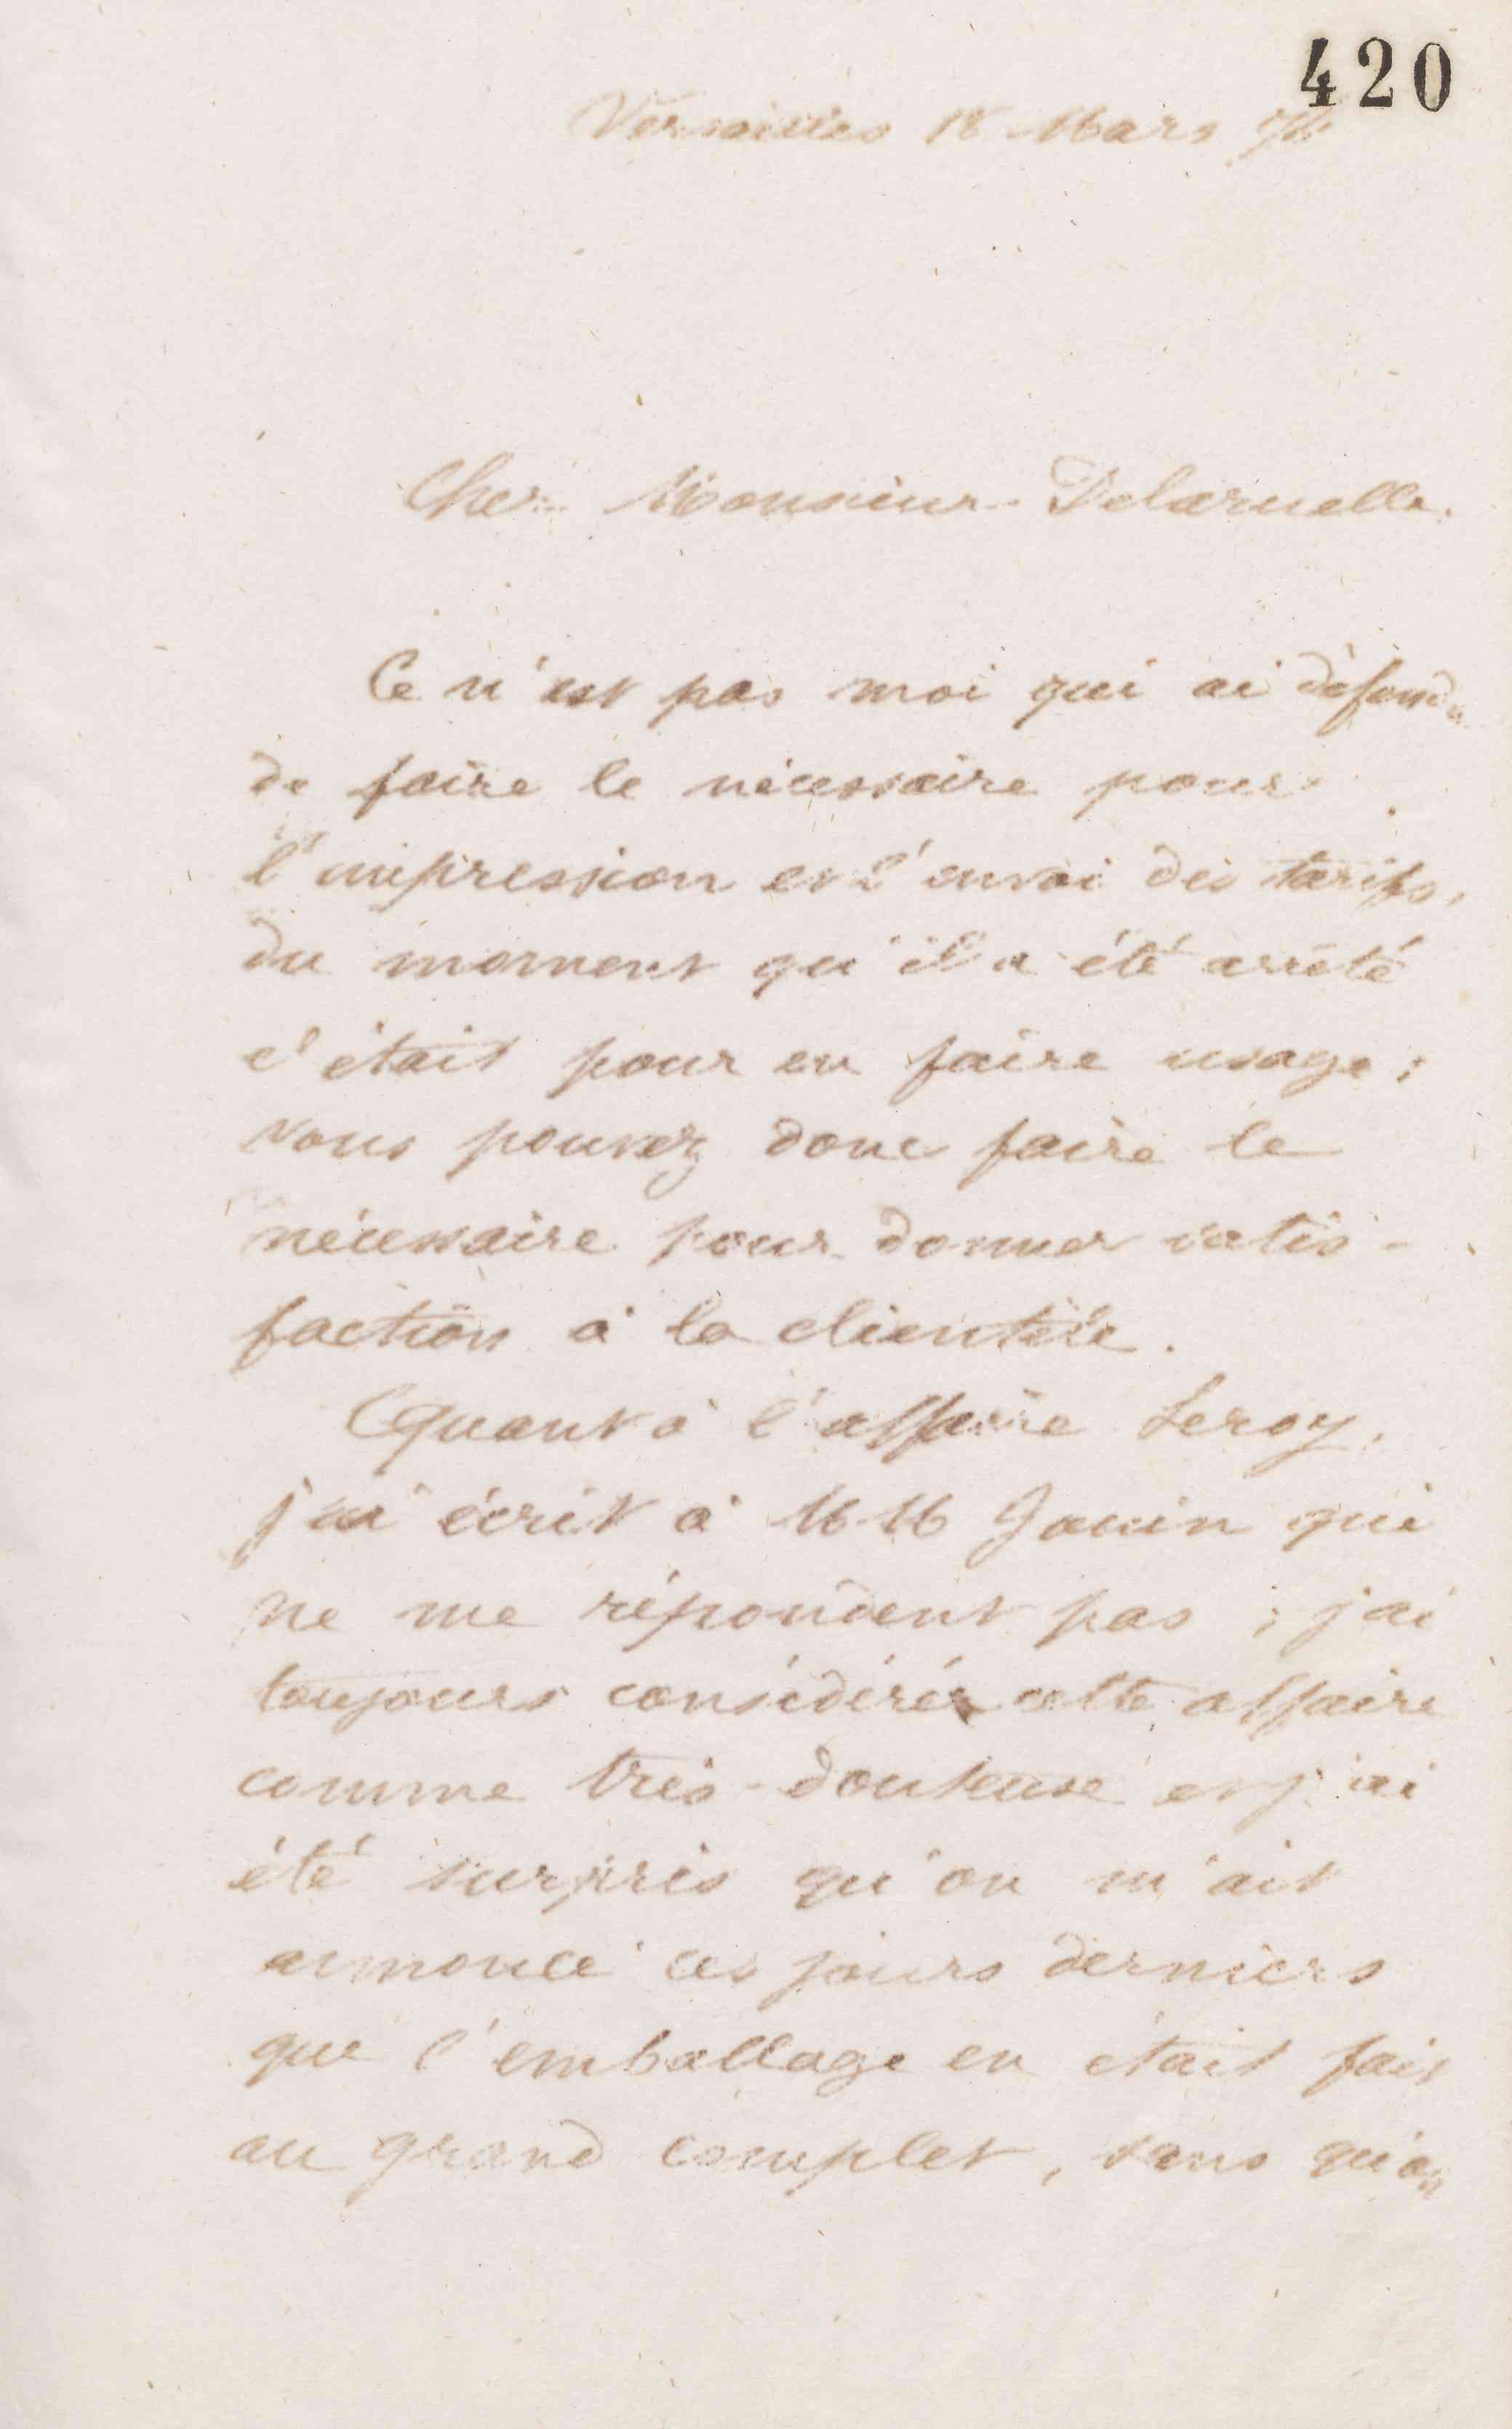 420
Versailles 18 Mars
Cher Monsieur Delaruelle.
Ce n'est pas moi qui ai défendu
de faire le nécessaire pour
l'impression et l'envoi des tarifs,
du moment qu'il a été arrêté
c'était pour en faire usage ;
vous pouvez donc faire le
nécessaire pour donner satis-
faction à la clientèle.
Quant à l'affaire Leroy,
j'ai écrit à MM Jouin qui
ne me répondent pas ; j'ai
toujours considéré cette affaire
comme très-douteuse et j'ai
été surpris qu'on m'ait
annoncé ces jours derniers
que l'emballage en était fait
au grand complet, sans qu'on